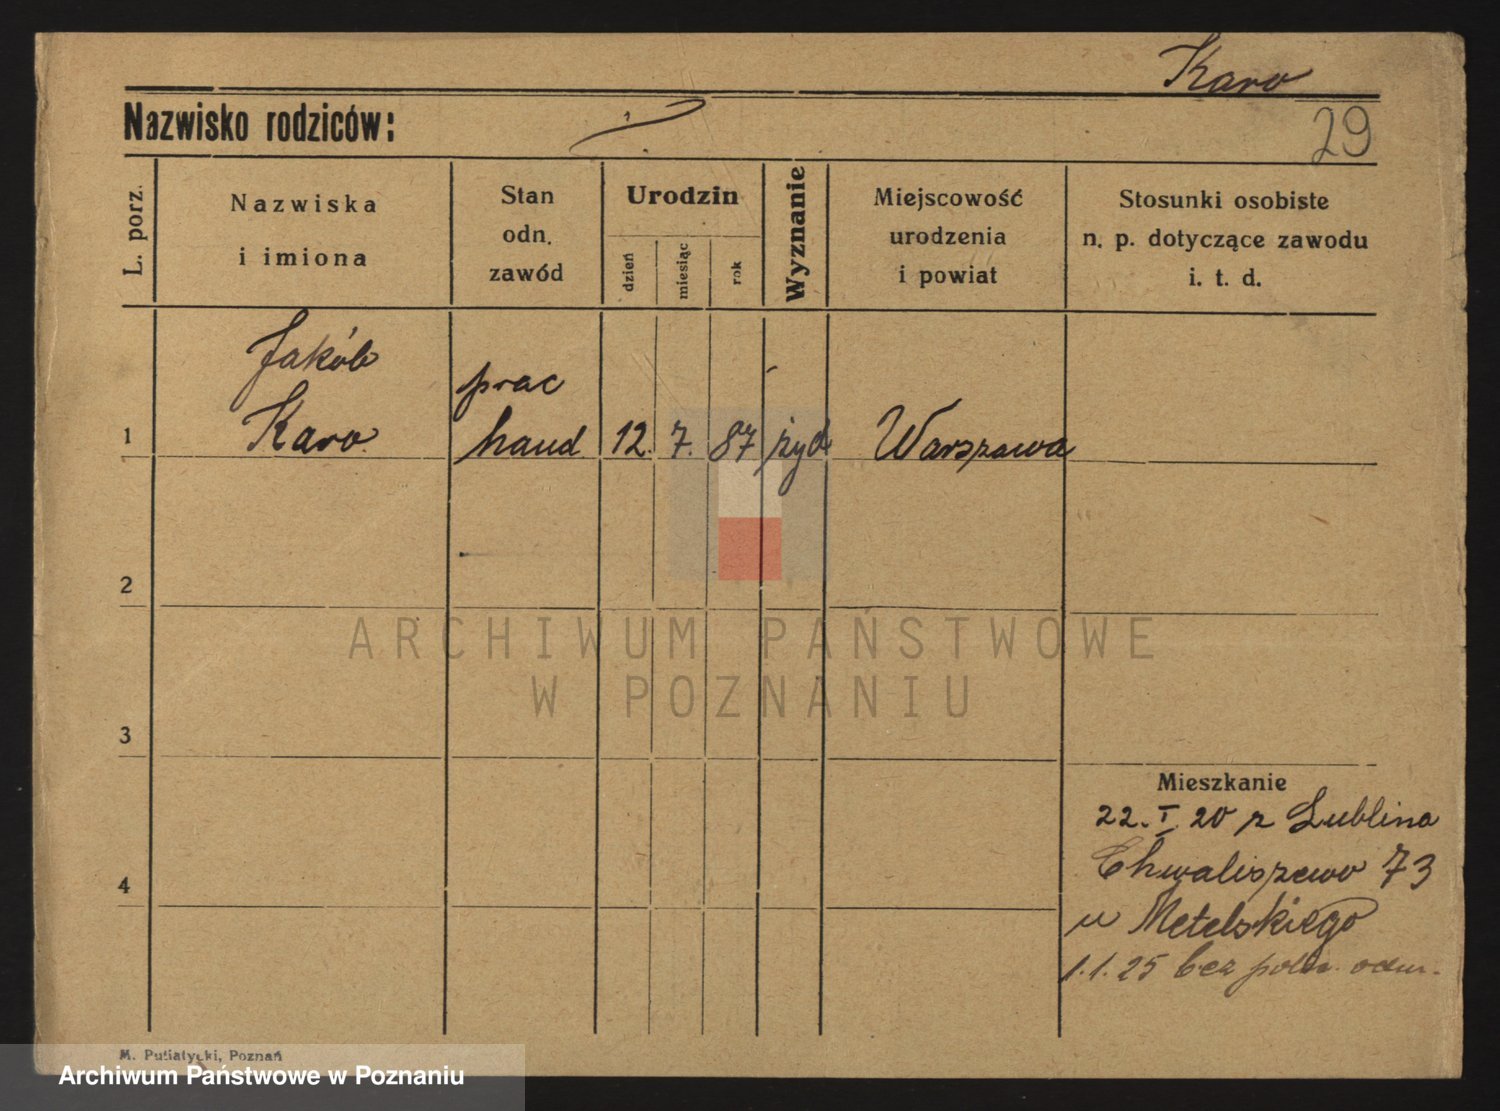 Karo
Nazwisko rodziców:
29
L. porz.
Nazwiska
i imiona
Stan
odn.
zawód
Urodzin
dzień
miesiąc
rok
Wyznanie
Miejscowość
urodzenia
i powiat
Stosunki osobiste
n. p. dotyczące zawodu
i. t. d.
1
Jakób
Karo
prac
hand
12. 7. 87
żyd
Warszawa
2
3
4
Mieszkanie
22. I. 20 z Lublina
Chwaliszewo 73
u Metelskiego
1.1.25 bez
M. Putiatycki, Poznań
ARCHIWUM PAŃSTWOWE
W POZNANIU
Archiwum Państwowe w Poznaniu